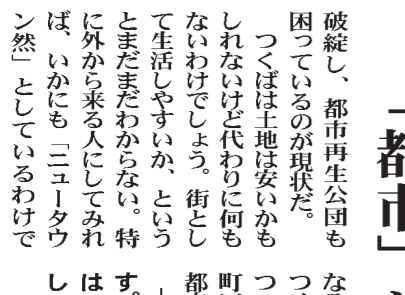 「都市」
破綻し、都市再生公団も
困っているのが現状だ。
つくばは土地は安いかも
しれないけど代わりに何も
ないわけでしょう。街とし
て生活しやすいか、という
とまだまだわからない。特
に外から来る人にしてみれ
ば、いかにも「ニュータウ
ン然」としているわけで
な
つ
つ
町
都
す。
は
し